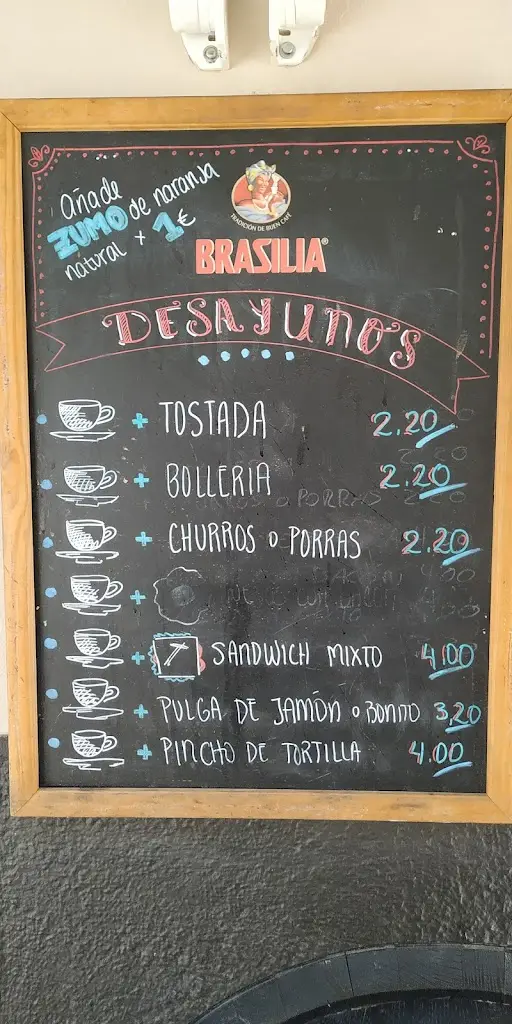 añade
ZUMO de naranja
natural + 1€
TRADICIÓN DE BUEN CAFÉ
BRASILIA®
DESAYUNOS
+ TOSTADA 2.20
+ BOLLERIA 2.20
+ CHURROS o PORRAS 2.20
+
+ SANDWICH MIXTO 4.00
+ PULGA DE JAMÓN o BONITO 3,20
+ PINCHO DE TORTILLA 4.00